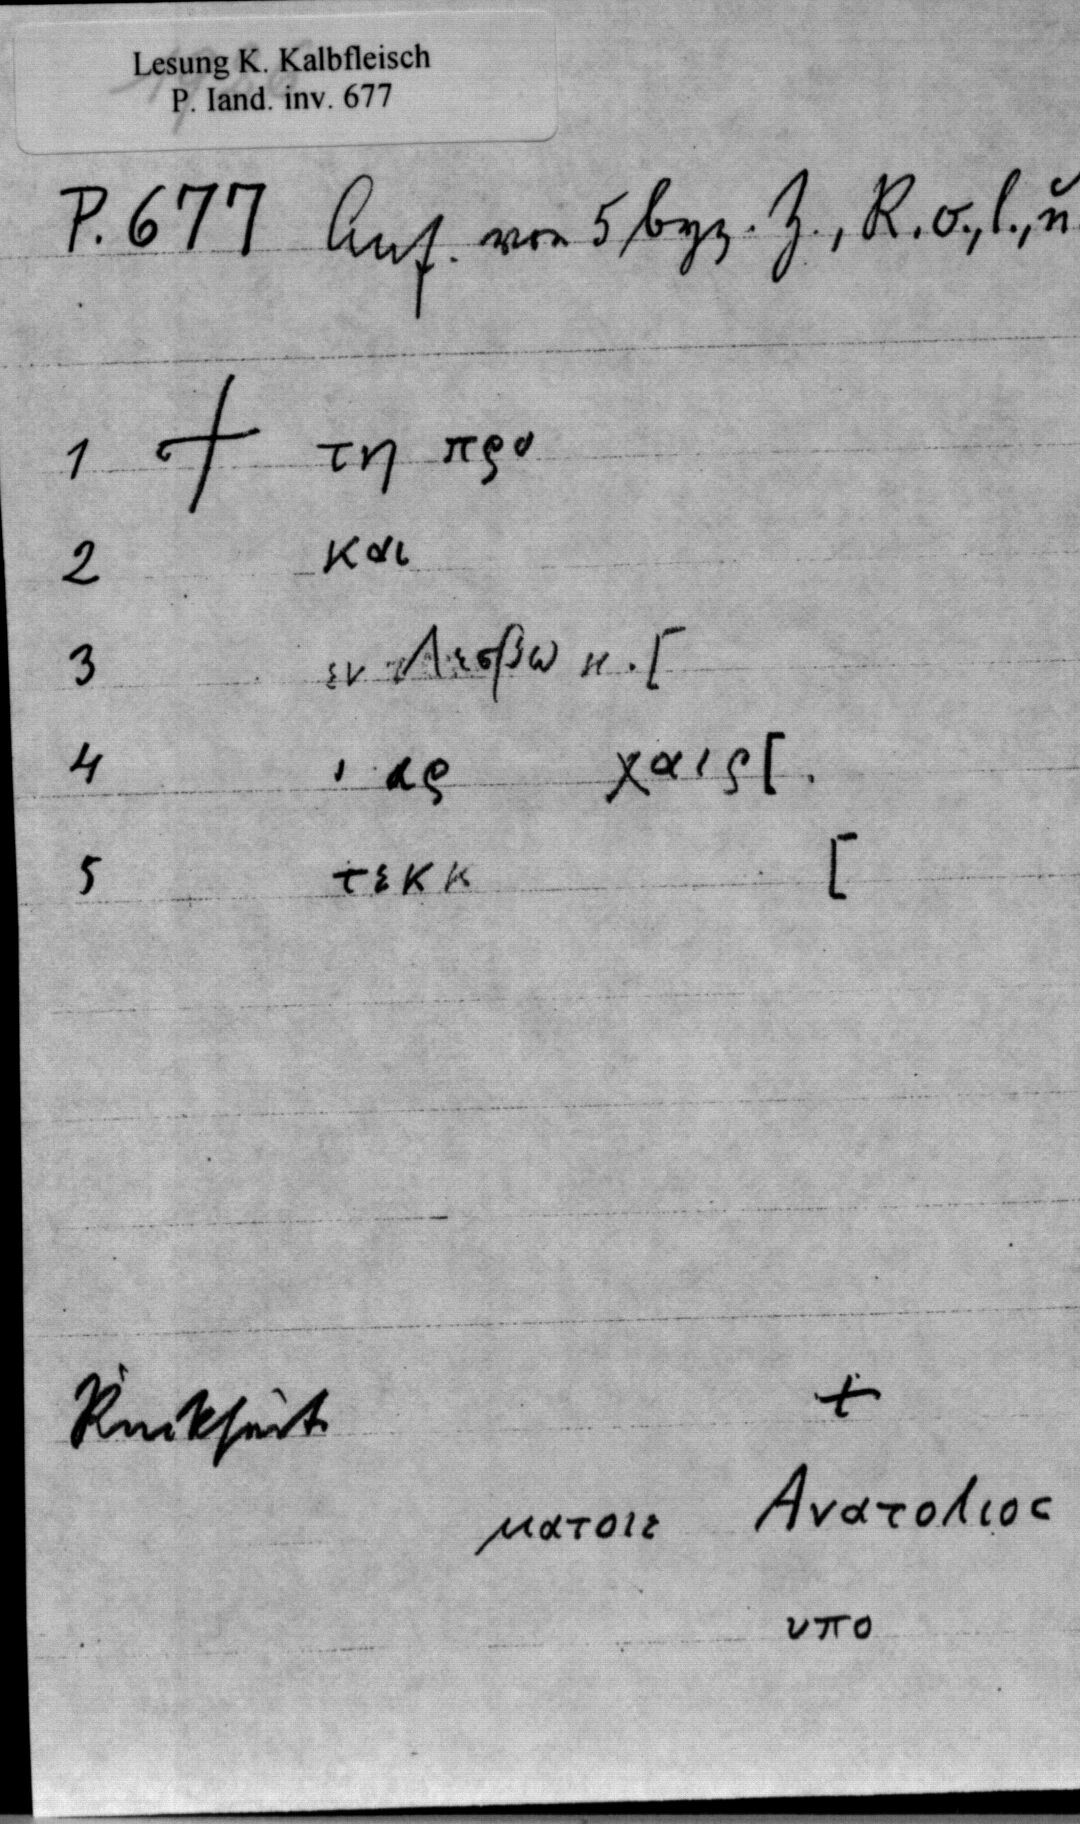 Lesung K. Kalbfleisch
P. Iand. inv. 677
P. 677 Anf. von 5 byz. Z., R. o., l., u.
1 + τη προ
2 και
3 εν Λεσβω κ . [
4 ι αρ χαιρ [ .
5 τεκκ [
Rückseite
+
ματοιε Ανατολιος
υπο